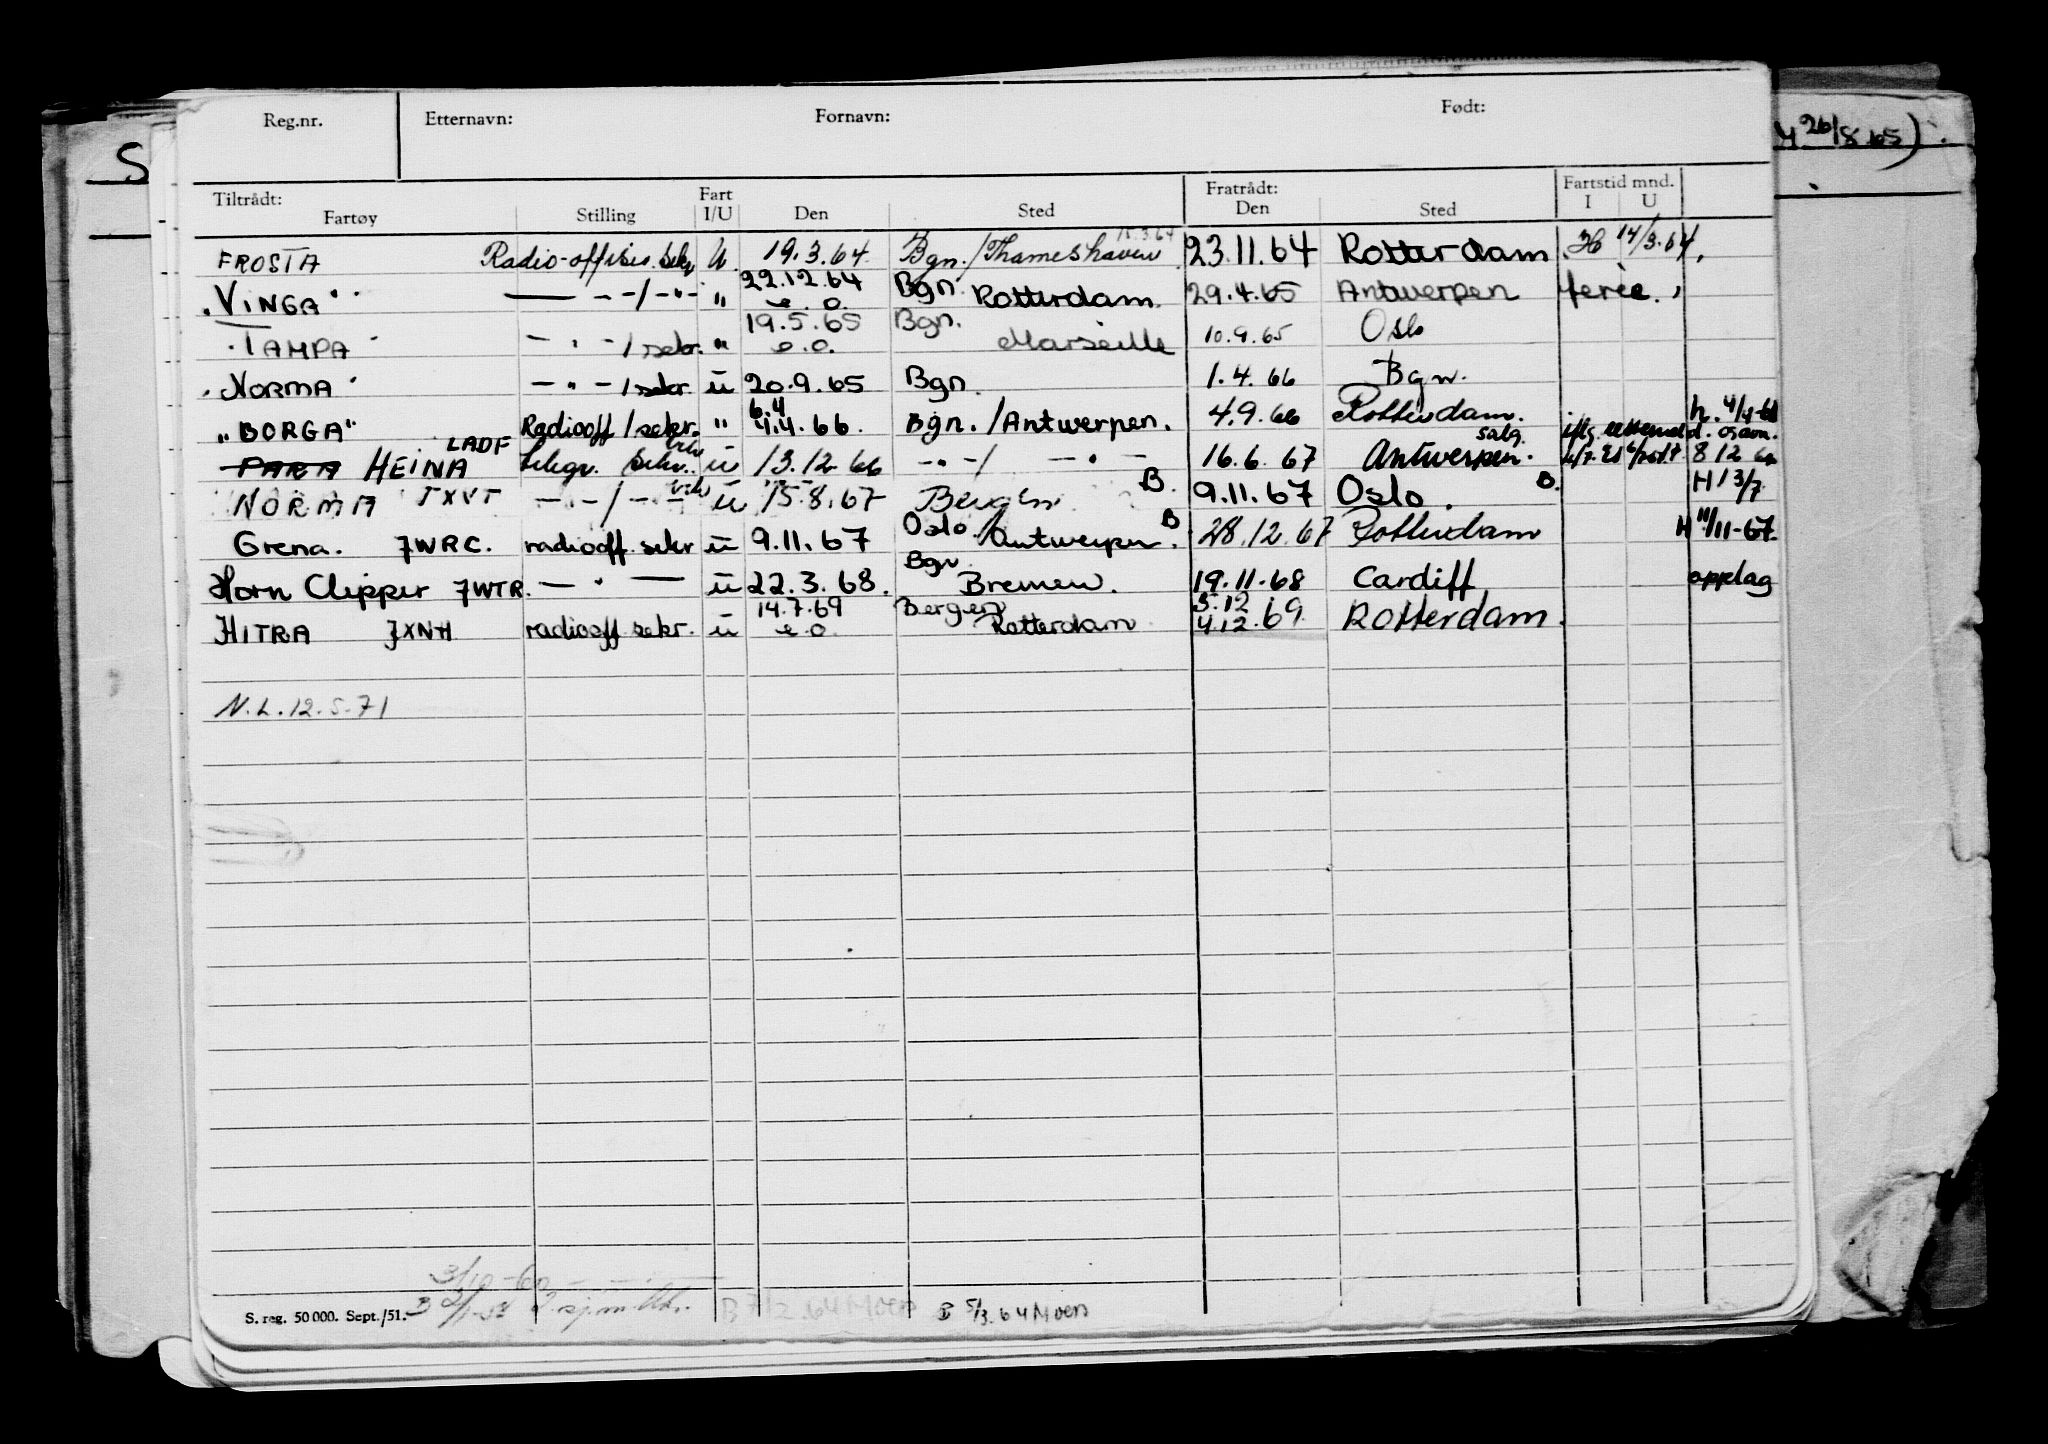 Reg.nr. Etternavn: Fornavn: Født:
S 26/8.65).
Tiltrådt: Fratrådt: Fartstid mnd.
Fartøy Stilling Fart I/U Den Sted Den Sted I U
15.3.64
FROSTA Radio-offiser. sekr U. 19.3.64. Bgn./Thameshaven 23.11.64 Rotterdam. H 14/3.64,
22.12.64 Bgn.
"VINGA" — - -/-"- " e.o. Rotterdam. 29.4.65 Antwerpen ferie.
19.5.65 Bgn.
"TAMPA" - " -/sekr. " e.o. Marseille 10.9.65 Oslo
"NORMA" - " -/sekr. u 20.9.65 Bgn. 1.4.66 Bgn.
6.4 h. 4/4-66
"BORGA" Radiooff/sekr. " 4.4.66. Bgn./Antwerpen. 4.9.66 Rotterdam.
LADF salg.
PARA HEINA telegr. sekr. u 13.12.66 -"-/ -"- 16.6.67 Antwerpen. 8 12
NORMA JXVT - " -/- " - u 15.8.67 Bergen B. 9.11.67 Oslo. B. H 13/7
Oslo/ B
Grena. JWRC. radiooff. sekr u 9.11.67 Antwerpen. 28.12.67 Rotterdam H 11/11-67.
Bgn.
Horn Clipper JWTR. — " — u 22.3.68. Bremen. 19.11.68 Cardiff opplag
14.7.69 Bergen 3.12
HITRA JXNH radiooff sekr. u e.o. Rotterdam 4.12.69. Rotterdam.
N.L.12.5.71
3/10-60
S. reg. 50 000. Sept./51. B 7/2.64 Moen B 5/3.64 Moen